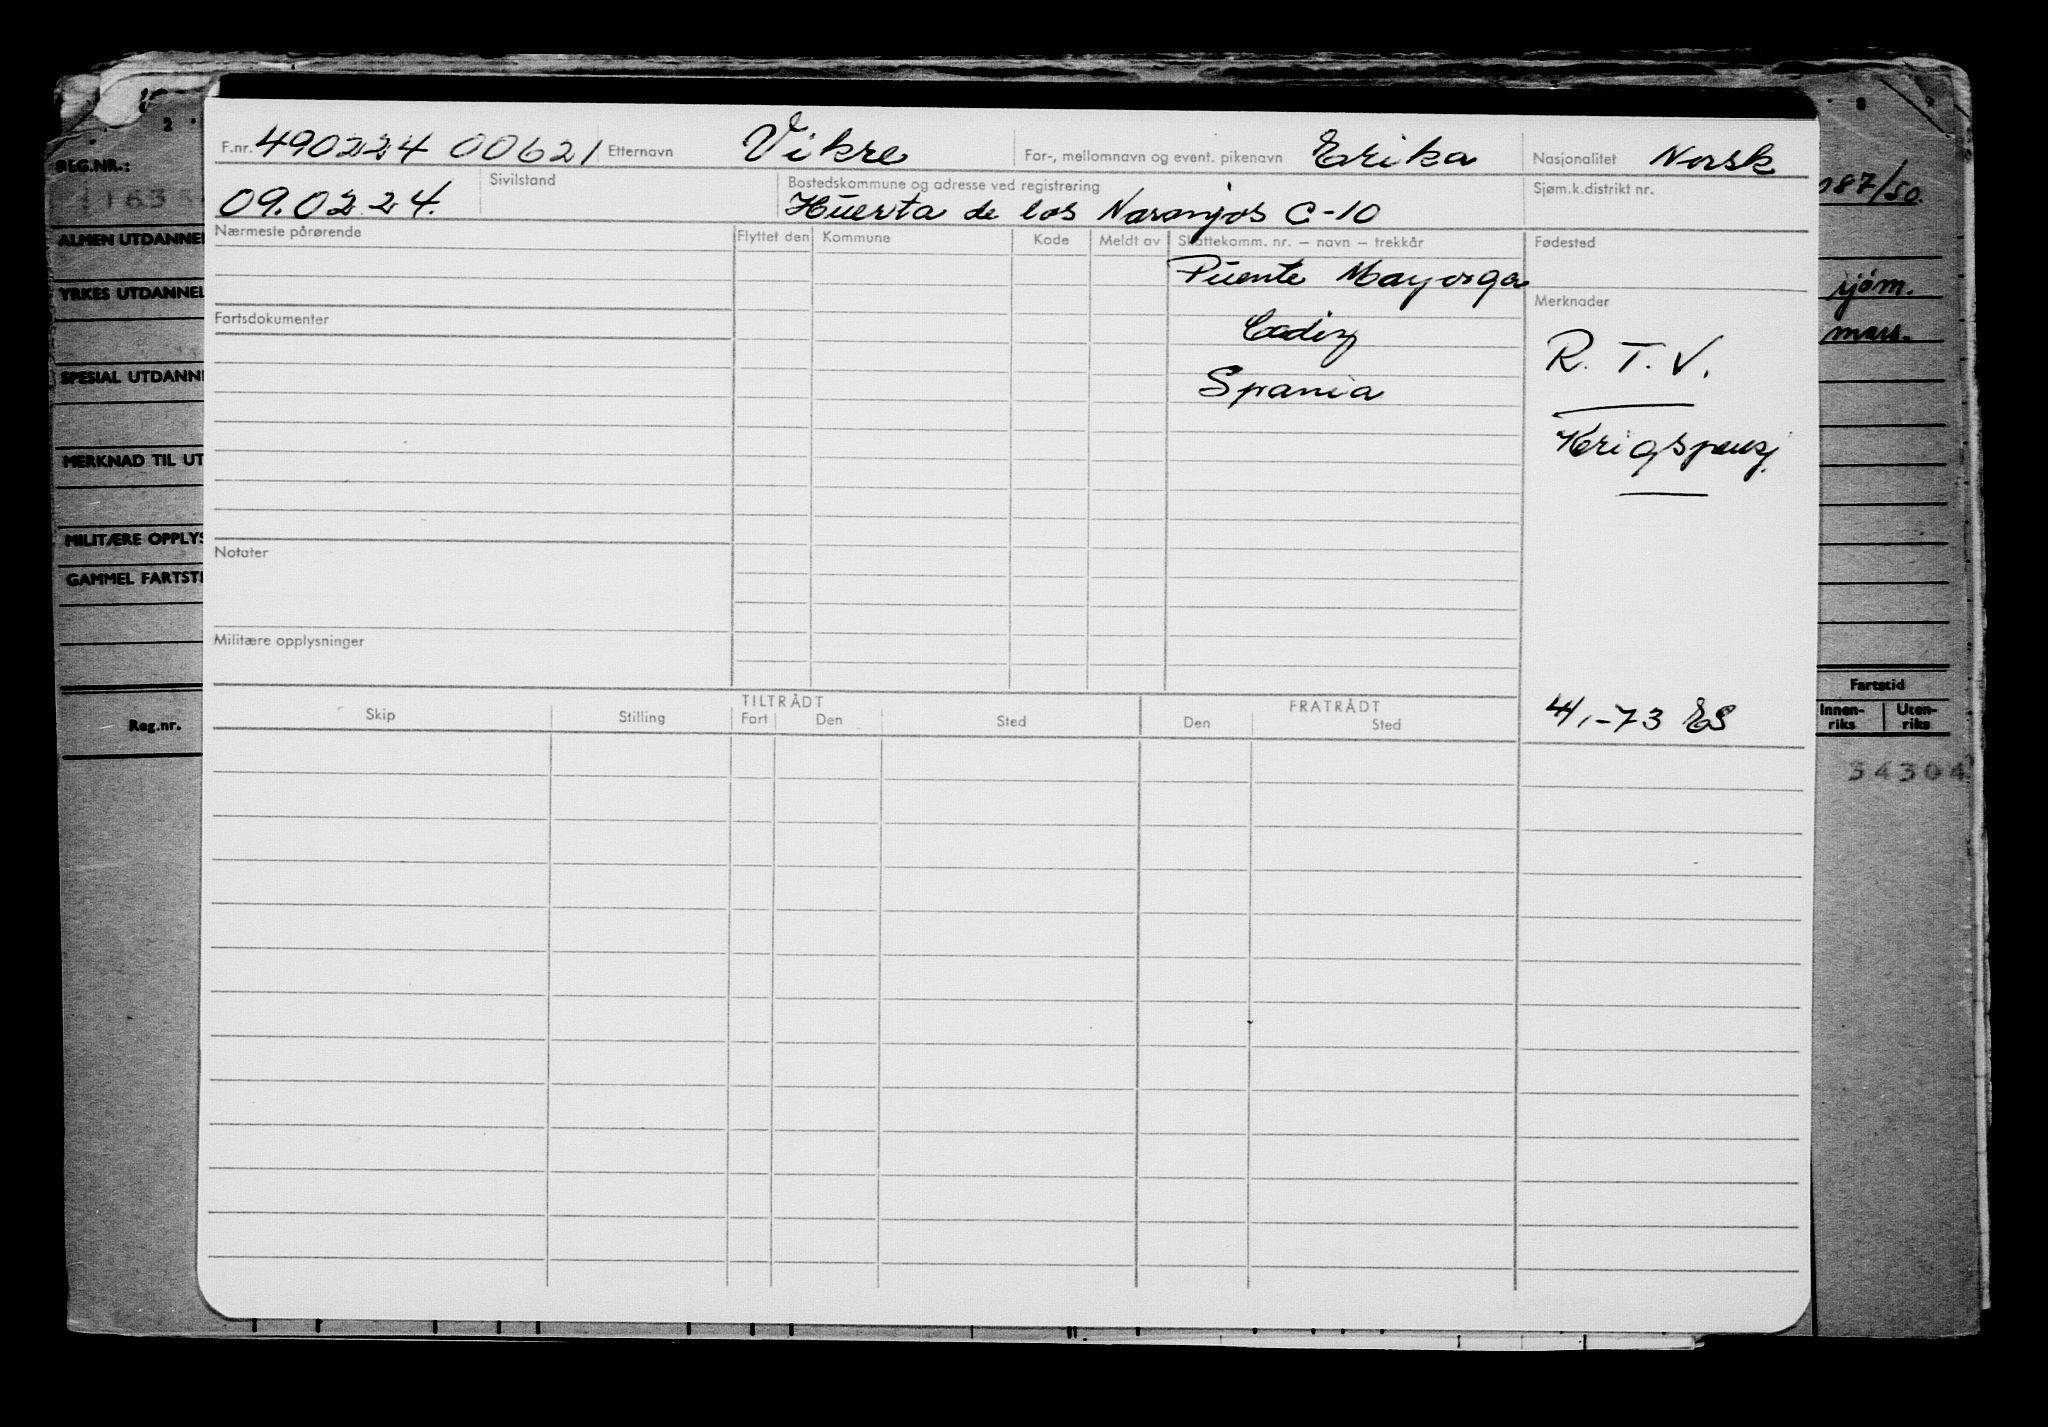 F.nr. 490224 00621 Etternavn Vikre For-, mellomnavn og event. pikenavn Erika Nasjonalitet Norsk
09.02 24. Sivilstand Bostedskommune og adresse ved registrering Sjøm.k.distrikt nr.
Huerta de los Naranjos C-10
Nærmeste pårørende Flyttet den Kommune Kode Meldt av Skattekomm. nr. – navn – trekkår Fødested
Puente Mayorga
Merknader
Fartsdokumenter
Cadiz
R. T. V.
Spania
Krigspensj.
Notater
Militære opplysninger
TILTRÅDT FRATRÅDT
Skip Stilling Fart Den Sted Den Sted
4/1-73 ES
2 8 9
REG.NR.:
087/50.
ALMEN UTDANNEL
YRKES UTDANNEL
sjøm.
mars.
SPESIAL UTDANNE
MERKNAD TIL UT
MILITÆRE OPPLYS
GAMMEL FARTSTI
Reg.nr.
Fartstid
Innen-riks Uten-riks
34304